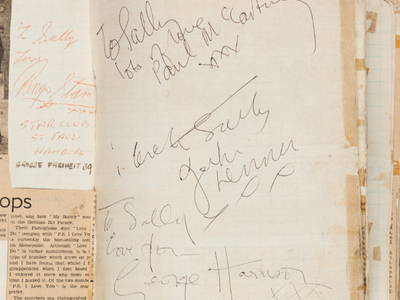 To Sally
Love
Ringo Starr
xxx
STAR CLUB
ST PAULI
HAMBURG
GROSSE FREIHEIT 39
To Sally
lots of love
Paul McCartney
xxx
to Sally
John
Lennon
To Sally
love from
George Harrison
xxx
ops
label, and how "My Bonny"
in the German Hit Parade.
Their Parlophone disc "Love
Do" coupled with "P.S. I Love You"
is currently the best-selling
on Merseyside. Although "Love
Do" is rather monotonous, it is
type of number which grows on
and I have found that whilst I
disappointed when I first heard
I enjoyed it more and more
times I played it. Of the two
"P.S. I Love You" is the one
prefer.
The numbers are distinguished